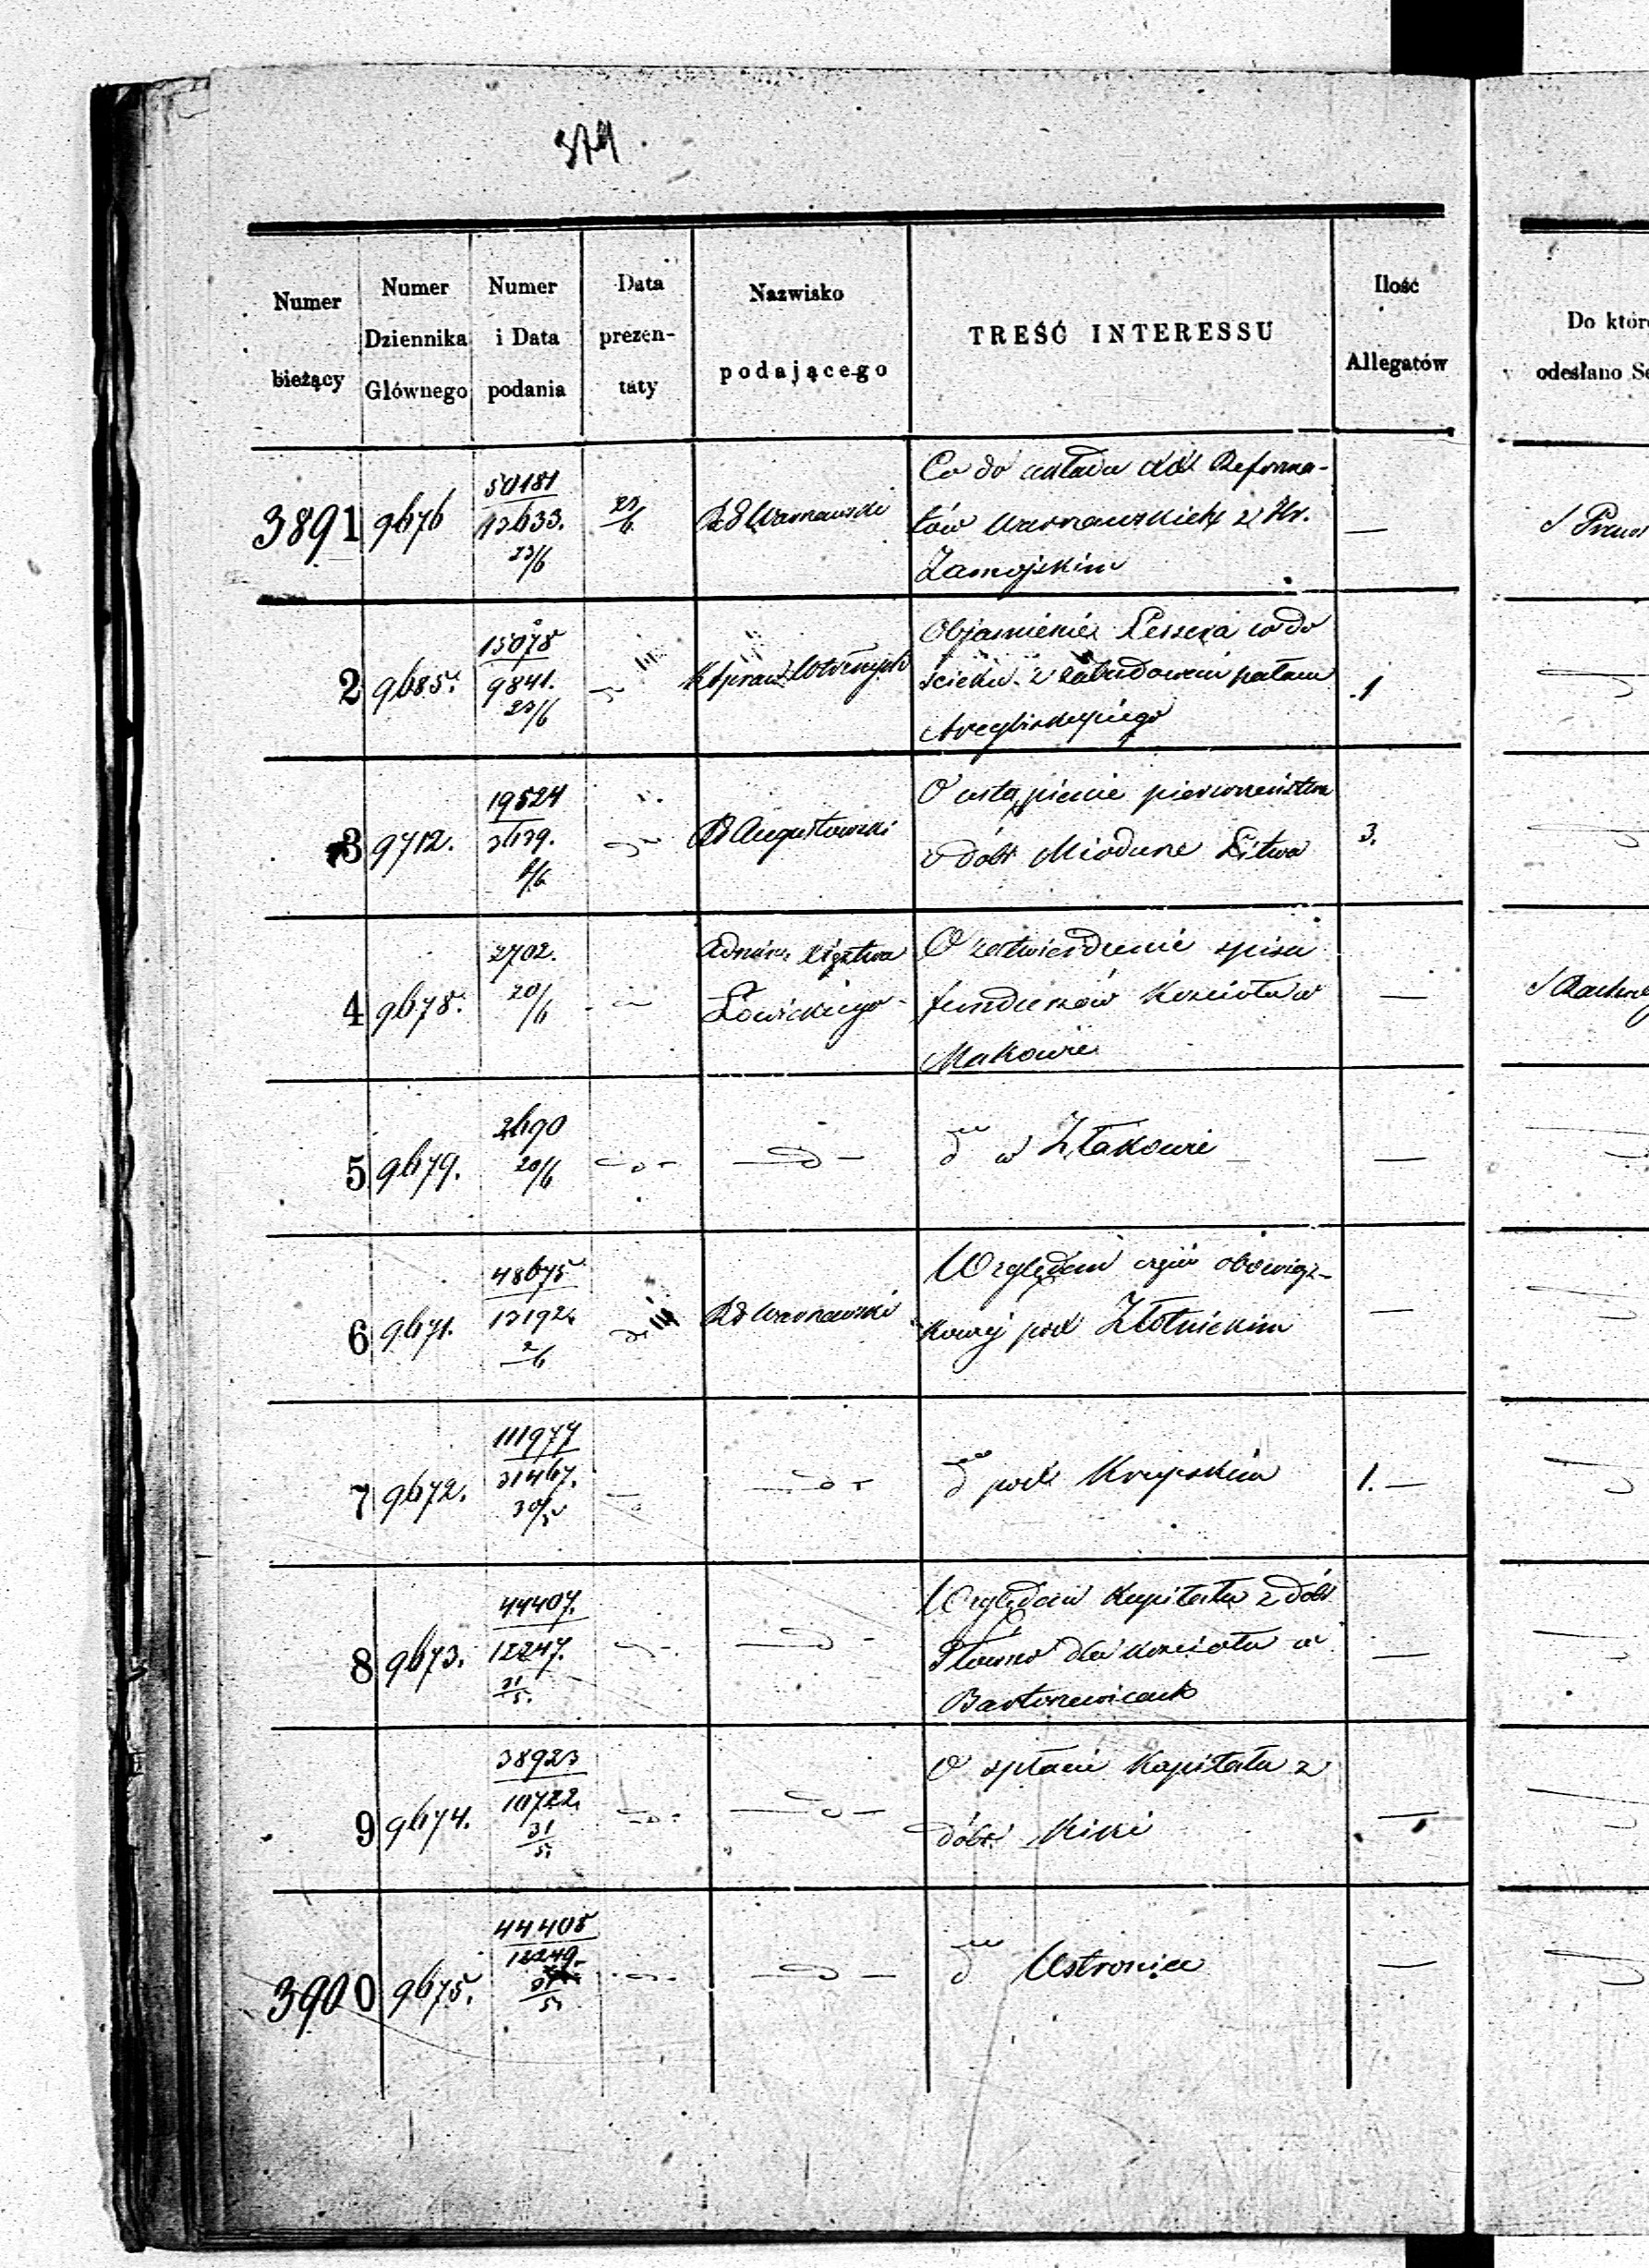 379.
Numer bieżący | Numer Dziennika Głównego | Numer i Data podania | Data prezentaty | Nazwisko podającego | TREŚĆ INTERESSU | Ilość Allegatów | Do któr
odesłano Se
3891 | 9676 | 50181
13633.
23/6 | 23/6 | Rd Warszawski | Co do układu XX Reforma-
tów Warszawskich z Hr.
Zamojskim | —
2 | 9685. | 15078
9841.
23/6 | K Spraw Wewnętrznych | Objaśnienie Lessera co do
ścieku z zabudowań pałacu
Arcybiskupiego | 1
3 | 9712. | 19524
3639. | Rd Augustowski | O ustąpienie pierwszeństwa
z dóbr Miodune Litwa | 3.
4 | 9678. | 2702.
20/6 | Admin. Księztwa
Łowickiego | O zatwierdzenie spisu
funduszów Kościoła w
Makowie | —
5 | 9679. | 2690
20/6 | — d — | d° w Złakowie | —
6 | 9671. | 48675
13192.
2/6 | Rd Warszawski | Względem części obowiąz-
kowej pod Złotnickim | —
7 | 9672. | 111977
31467.
30/5 | — d — | d° pod Krupskim | 1. —
8 | 9673. | 44407.
12247.
31/5. | — d — | Względem Kapitału z dóbr
dla Kościoła w | —
9 | 9674. | 38923
10722.
31/5. | — d — | O spłacie Kapitału z
dóbr Kiki | —
3900 | 9675. | 44408
12249.
31/5. | — d — | d° Ustronice | —